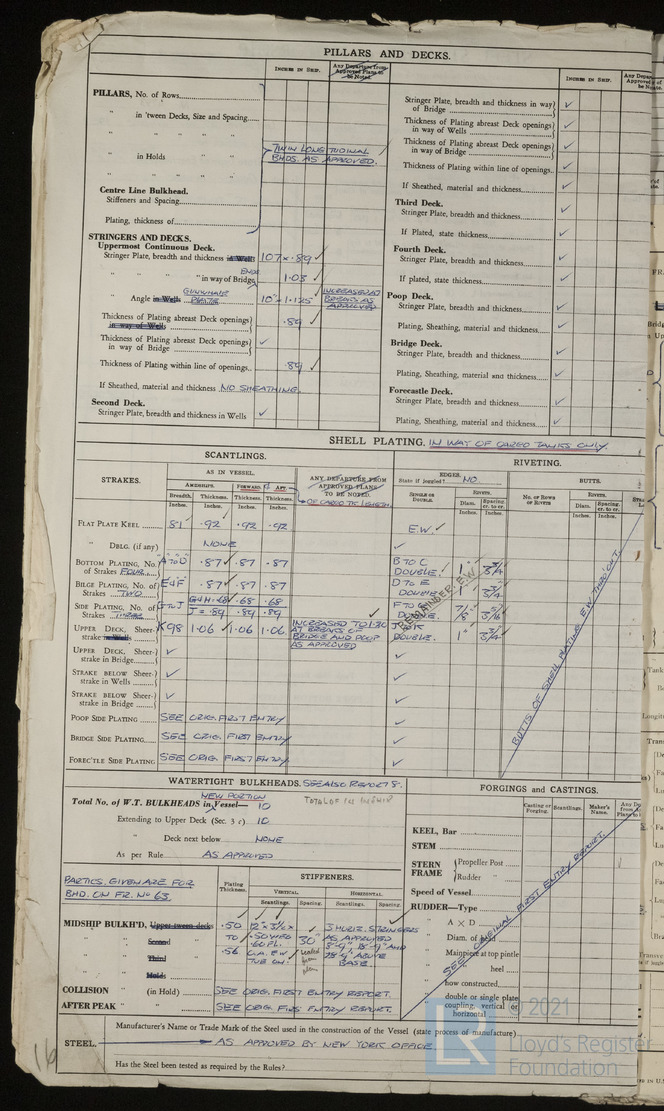 PILLARS AND DECKS.
INCHES IN SHIP.
Any Departure from Approved Plans to be Noted
PILLARS, No. of Rows
" in 'tween Decks, Size and Spacing
" " " "
" in Holds " "
TWIN LONGITUDINAL
BHDS. AS APPROVED.
" " " "
Centre Line Bulkhead.
Stiffeners and Spacing
Plating, thickness of
STRINGERS AND DECKS.
Uppermost Continuous Deck.
Stringer Plate, breadth and thickness in Wells 107 x .89 ✓
" " " in way of Bridge ENDS 1.03 ✓
" Angle in Wells GUNWHALE PLATE 10" x 1.125 INCREASED AT BREAKS AS APPROVED
Thickness of Plating abreast Deck openings in way of Wells .89 ✓
Thickness of Plating abreast Deck openings in way of Bridge ✓
Thickness of Plating within line of openings .89 ✓
If Sheathed, material and thickness NO SHEATHING.
Second Deck.
Stringer Plate, breadth and thickness in Wells ✓
INCHES IN SHIP.
Stringer Plate, breadth and thickness in way of Bridge ✓
Thickness of Plating abreast Deck openings in way of Wells ✓
Thickness of Plating abreast Deck openings in way of Bridge ✓
Thickness of Plating within line of openings ✓
If Sheathed, material and thickness ✓
Third Deck.
Stringer Plate, breadth and thickness ✓
If Plated, state thickness ✓
Fourth Deck.
Stringer Plate, breadth and thickness ✓
If plated, state thickness ✓
Poop Deck.
Stringer Plate, breadth and thickness ✓
Plating, Sheathing, material and thickness ✓
Bridge Deck.
Stringer Plate, breadth and thickness ✓
Plating, Sheathing, material and thickness ✓
Forecastle Deck.
Stringer Plate, breadth and thickness ✓
Plating, Sheathing, material and thickness ✓
SHELL PLATING. IN WAY OF CARGO TANKS ONLY.
SCANTLINGS.
RIVETING.
STRAKES.
AS IN VESSEL.
AMIDSHIPS. FORWARD. & AFT.
Breadth. Thickness. Thickness. Thickness.
Inches. Inches. Inches. Inches.
ANY DEPARTURE FROM APPROVED PLANS TO BE NOTED.
EDGES.
State if joggled? NO
SINGLE OR DOUBLE.
RIVETS.
Diam. Spacing cr. to cr.
Inches. Inches.
BUTTS.
No. OF ROWS OF RIVETS
RIVETS.
Diam. Spacing cr. to cr.
Inches. Inches.
FLAT PLATE KEEL 81 .92 .92 .92 E.W.
" DBLG. (if any) NONE
BOTTOM PLATING, No. of Strakes FOUR A TO D .87 ✓ .87 .87 B TO C DOUBLE. 1" 3 3/4
BILGE PLATING, No. of Strakes TWO E & F .87 ✓ .87 .87 D TO E DOUBLE. 1" 3 3/4
SIDE PLATING, No. of Strakes G TO J G & H .68 .68 .68
J = .89 .89 .89
F TO G 7/8"
REMAINDER E.W.
UPPER DECK, Sheer-strake in Wells K 98 1.06 ✓ 1.06 1.06 INCREASED TO 1.30 AT BREAKS OF BRIDGE AND POOP AS APPROVED J TO K DOUBLE. 1" 3 3/4
UPPER DECK, Sheer-strake in Bridge ✓
STRAKE BELOW Sheer-strake in Wells ✓
STRAKE BELOW Sheer-strake in Bridge ✓
POOP SIDE PLATING SEE ORIG. FIRST ENTRY
BRIDGE SIDE PLATING SEE ORIG. FIRST ENTRY
FOREC'TLE SIDE PLATING SEE ORIG. FIRST ENTRY
BUTTS OF SHELL PLATING E.W. THRO'OUT.
WATERTIGHT BULKHEADS. SEE ALSO REPORT 8.
NEW PORTION
Total No. of W.T. BULKHEADS in Vessel— 10
Extending to Upper Deck (Sec. 3 c) 10
" Deck next below NONE
As per Rule AS APPROVED
PARTICS. GIVEN ARE FOR
BHD. ON FR. No 63.
Plating Thickness.
STIFFENERS.
VERTICAL. HORIZONTAL.
Scantlings. Spacing. Scantlings. Spacing.
MIDSHIP BULKH'D, Upper tween decks
" Second
" Third
" Holds
.50 TO .56
30"
3 HORIZ. STRINGERS
AS APPROVED
ABOVE BASE.
COLLISION " (in Hold) SEE ORIG. FIRST ENTRY REPORT.
AFTER PEAK " " SEE ORIG. FIRST ENTRY REPORT.
FORGINGS and CASTINGS.
Casting or Forging. Scantlings. Maker's Name.
KEEL, Bar
STEM
STERN FRAME Propeller Post
Rudder "
Speed of Vessel
RUDDER—Type
" A x D
" Diam. of head
" Mainpiece at top pintle
" " heel
" how constructed
" double or single plate
coupling, vertical or horizontal
SEE ORIGINAL FIRST ENTRY REPORT.
Manufacturer's Name or Trade Mark of the Steel used in the construction of the Vessel (state process of manufacture)
STEEL. AS APPROVED BY NEW YORK OFFICE
Has the Steel been tested as required by the Rules?
© 2021
Lloyd's Register
Foundation
LR